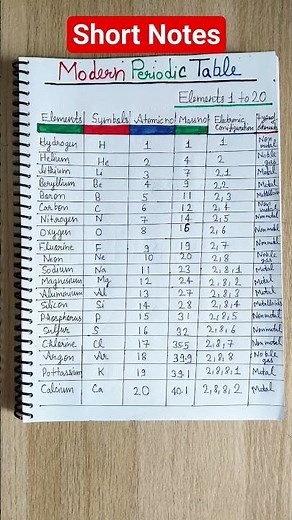 Short Notes
Modern Periodic Table
Elements 1 to 20
Elements Symbols Atomic no Mass no Electronic Configuration
Hydrogen H 1 1 1 Non metal
Helium He 2 4 2 Noble gas
Lithium Li 3 7 2,1 Metal
Beryllium Be 4 9 2,2 Metal
Boron B 5 11 2,3 Metalloid
Carbon C 6 12 2,4 Non metal
Nitrogen N 7 14 2,5 Nonmetal
Oxygen O 8 16 2,6 Nonmetal
Fluorine F 9 19 2,7 Nonmetal
Neon Ne 10 20 2,8 Noble gas
Sodium Na 11 23 2,8,1 Metal
Magnesium Mg 12 24 2,8,2 Metal
Aluminium Al 13 27 2,8,3 Metal
Silicon Si 14 28 2,8,4 Metalloids
Phosphorus P 15 31 2,8,5 Nonmetal
Sulfur S 16 32 2,8,6 Nonmetal
Chlorine Cl 17 35.5 2,8,7 Non metal
Argon Ar 18 39.9 2,8,8 Noble gas
Pottassium K 19 39.1 2,8,8,1 Metal
Calcium Ca 20 40.1 2,8,8,2 Metal